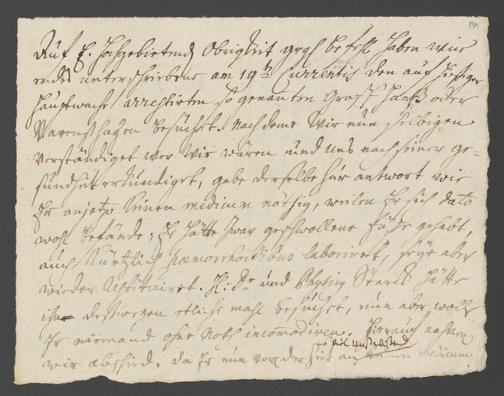 Auf E. Hochgebietend. Obrigkeit Befehl haben wir
endes unterschriebene am 19t. Currentis den auf hiesiger
Hauptwache arrestirten so genanten Graff oder
besuchet. Nachdeme Wir nun selbigen
verständiget wer Wir wären und uns nach seiner ge-
sundheit erkundiget, gabe derselbe zur antwort wie
Er anjetzo keinen medicum nöthig, weilen Er sich dato
wohl befände, Er hätte zwar geschwollene füße gehabt,
auch kürtzlich haemorrhoidibus laboriret, seye aber
wieder restituiret. H. Dr. und Physicus hätte
ihn deßwegen etliche mahl besuchet, nun aber wolle
Er niemand ohne Noth incomodiren. Hierauf nahmen
wir abschied. Da Er nun vor der Zeit an keinen medicum